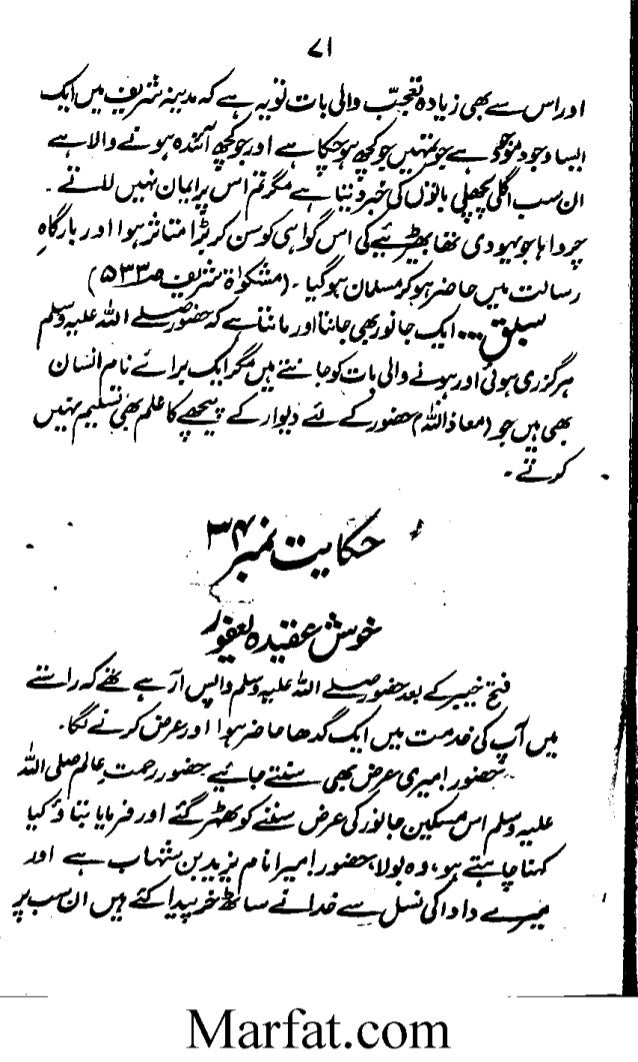 ۷۱
اور اس سے بھی زیادہ تعجب والی بات تو یہ ہے کہ مدینہ شریف میں ایک
ایسا وجود موجود ہے جو تمہیں جو کچھ ہو چکا ہے اور جو کچھ آئندہ ہونے والا ہے
ان سب اگلی پچھلی باتوں کی خبر دیتا ہے مگر تم اس پر ایمان نہیں لاتے ۔
چرواہا جو یہودی تھا بھیڑیئے کی اس گواہی کو سن کر بڑا متاثر ہوا اور بارگاہِ
رسالت میں حاضر ہو کر مسلمان ہو گیا ۔ (مشکوٰۃ شریف ص ۵۳۳)
سبق ... ایک جانور بھی جانتا اور مانتا ہے کہ حضور صلے اللہ علیہ وسلم
ہر گزری ہوئی اور ہونے والی بات کو جانتے ہیں مگر ایک برائے نام انسان
بھی ہیں جو (معاذ اللہ) حضور کے لئے دیوار کے پیچھے کا علم بھی تسلیم نہیں
کرتے ۔
حکایت نمبر ۳۴
خوش عقیدہ یعفور
فتح خیبر کے بعد حضور صلے اللہ علیہ وسلم واپس آ رہے تھے کہ راستے
میں آپ کی خدمت میں ایک گدھا حاضر ہوا اور عرض کرنے لگا۔
حضور! میری عرض بھی سنتے جائیے حضور رحمتِ عالم صلی اللہ
علیہ وسلم اس مسکین جانور کی عرض سننے کو ٹھہر گئے اور فرمایا بتاؤ کیا
کہنا چاہتے ہو، وہ بولا، حضور! میرا نام یزید بن شہاب ہے اور
میرے دادا کی نسل سے خدا نے ساٹھ خر پیدا کئے ہیں ان سب پر
Marfat.com